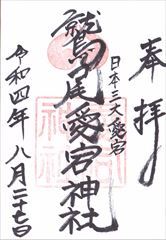 奉拝
日本三大愛宕
鷲尾愛宕神社
令和四年八月二十七日